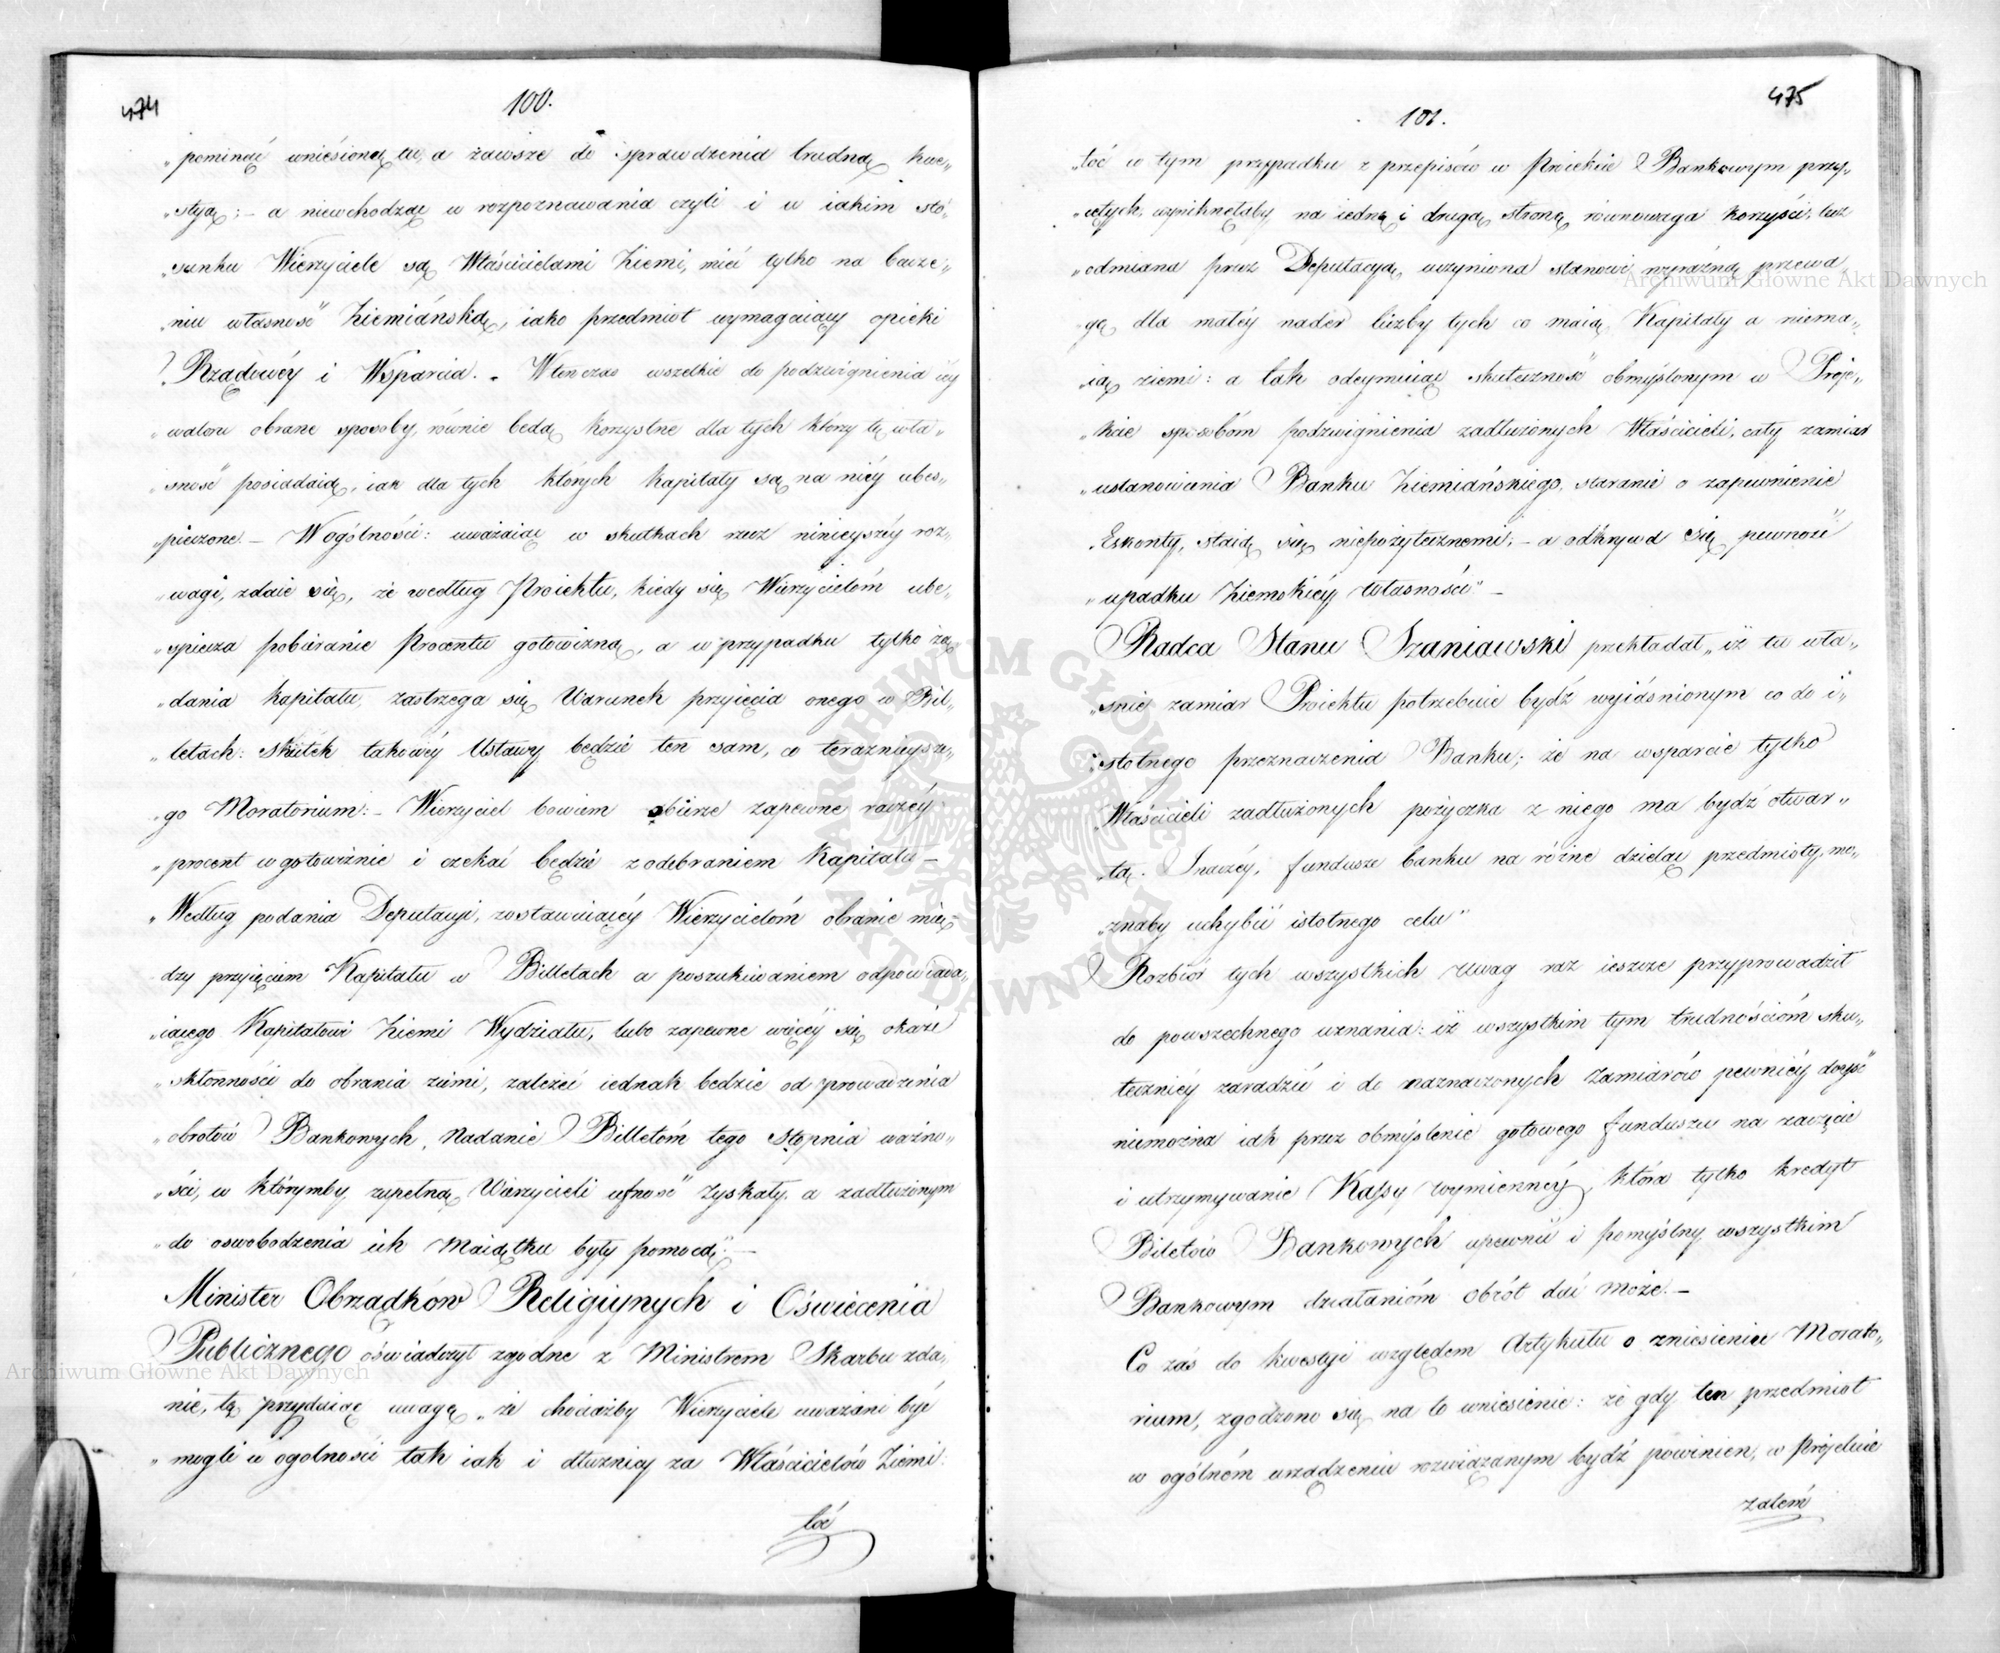 474
100.
„pominąć wniesioną tu, a zawsze do sprawdzenia trudną kwe„
„styą; – a niewchodząc w rozpoznawania czyli i w iakim sto„
„sunku Wierzyciele są Właścicielami Ziemi, mieć tylko na bacze„
„niu własność Ziemiańską, iako przedmiot wymagaiący opieki
„Rządowéy i Wsparcia. – Wtenczas wszelkie do podzwignienia iéy
„waloru obrane sposoby, równie będą korzystne dla tych którzy tę wła„
„sność posiadaią, iak dla tych których Kapitały są na niéy ubes„
„pieczone. – Wogólności: uważaiąc w skutkach rzecz ninieyszéy roz„
„wagi, zdaie się, że według Proiektu, kiedy się Wierzycielóm ube„
„spiecza pobieranie Procentu gotowizną, a w przypadku tylko żą„
„dania kapitału, zastrzega się Warunek przyięcia onego w Bil„
„letach: skutek takowéy Ustawy będzie ten sam, co teraznieysze„
„go Moratorium: – Wierzyciel bowiem obierze zapewne raczéy
„procent w gotowiznie i czekać będzie z odebraniem Kapitału –
„Według podania Deputacyi, zostawuiącéy Wierzycielóm obranie mię„
dzy przyięciem Kapitału w Billetach a poszukiwaniem odpowiada„
„iącego Kapitałowi Ziemi Wydziału, lubo zapewne więcéy się okaże
„skłonności do obrania ziemi, zależéć iednak będzie od prowadzenia
„obrotów Bankowych, Nadanie Billetóm tego stopnia ważno„
„ści, w którymby zupełną Wierzycieli ufność zyskały, a zadłużonym
„do oswobodzenia ich Maiątku były pomocą". –
Minister Obrządków Religiynych i Oświecenia
Publicznego oświadczył zgodne z Ministrem Skarbu zda„
nie, tę przydaiąc uwagę „że chociażby Wierzyciele uważani być
„mogli w ogolności tak iak i dłużnicy za Właścicielów Ziemi:
toć
475
101.
„toć w tym przypadku z przepisów w Proiekcie Bankowym przy„
„iętych, wyniknęłaby na iedną i drugą stronę równowaga korzyści, lecz
„odmiana przez Deputacyą uczyniona stanowi wyraźną przewa
gę dla małéy nader liczby tych co maią Kapitały a niema„
„ią ziemi: a tak odeymuiąc skuteczność obmyślonym w Proje„
„kcie sposobóm podzwignienia zadłużonych Właścicieli, cały zamiar
„ustanowienia Banku Ziemiańskiego, staranie o zapewnienie
„Eskonty, staią się niepożytecznemi; – a odkrywa się pewność
„upadku Ziemskiéy Własności" –
Radca Stanu Szaniawski przekładał „iż tu wła„
„śnie zamiar Proiektu potrzebuie bydź wyiaśnionym co do i„
„stotnego przeznaczenia Banku; że na wsparcie tylko
„Właścicieli zadłużonych pożyczka z niego ma bydź otwar„
„tą. Inaczéy, fundusze banku na różne dzieląc przedmioty, mo„
„żnaby uchybić istotnego celu"
Rozbiór tych wszystkich Uwag raz ieszcze przyprowadził
do powszechnego uznania: iż wszystkim tym trudnościóm sku„
teczniéy zaradzić i do naznaczonych Zamiarów pewniéy doyść
niemożna iak przez obmyślenie gotowego funduszu na zaczęcie
i utrzymywanie Kassy wymiennéy, która tylko kredyt
Biletów Bankowych upewnić i pomyślny wszystkim
Bankowym działanióm obrót dać może. –
Co zaś do kwestyi względem Artykułu o zniesieniu Morato„
rium, zgodzono się na to wniesienie: że gdy ten przedmiot
w ogólném urządzeniu rozwiązanym bydź powinien, w Projekcie
zatém
Archiwum Główne Akt Dawnych
Archiwum Główne Akt Dawnych
ARCHIWUM GŁÓWNE AKT DAWNYCH